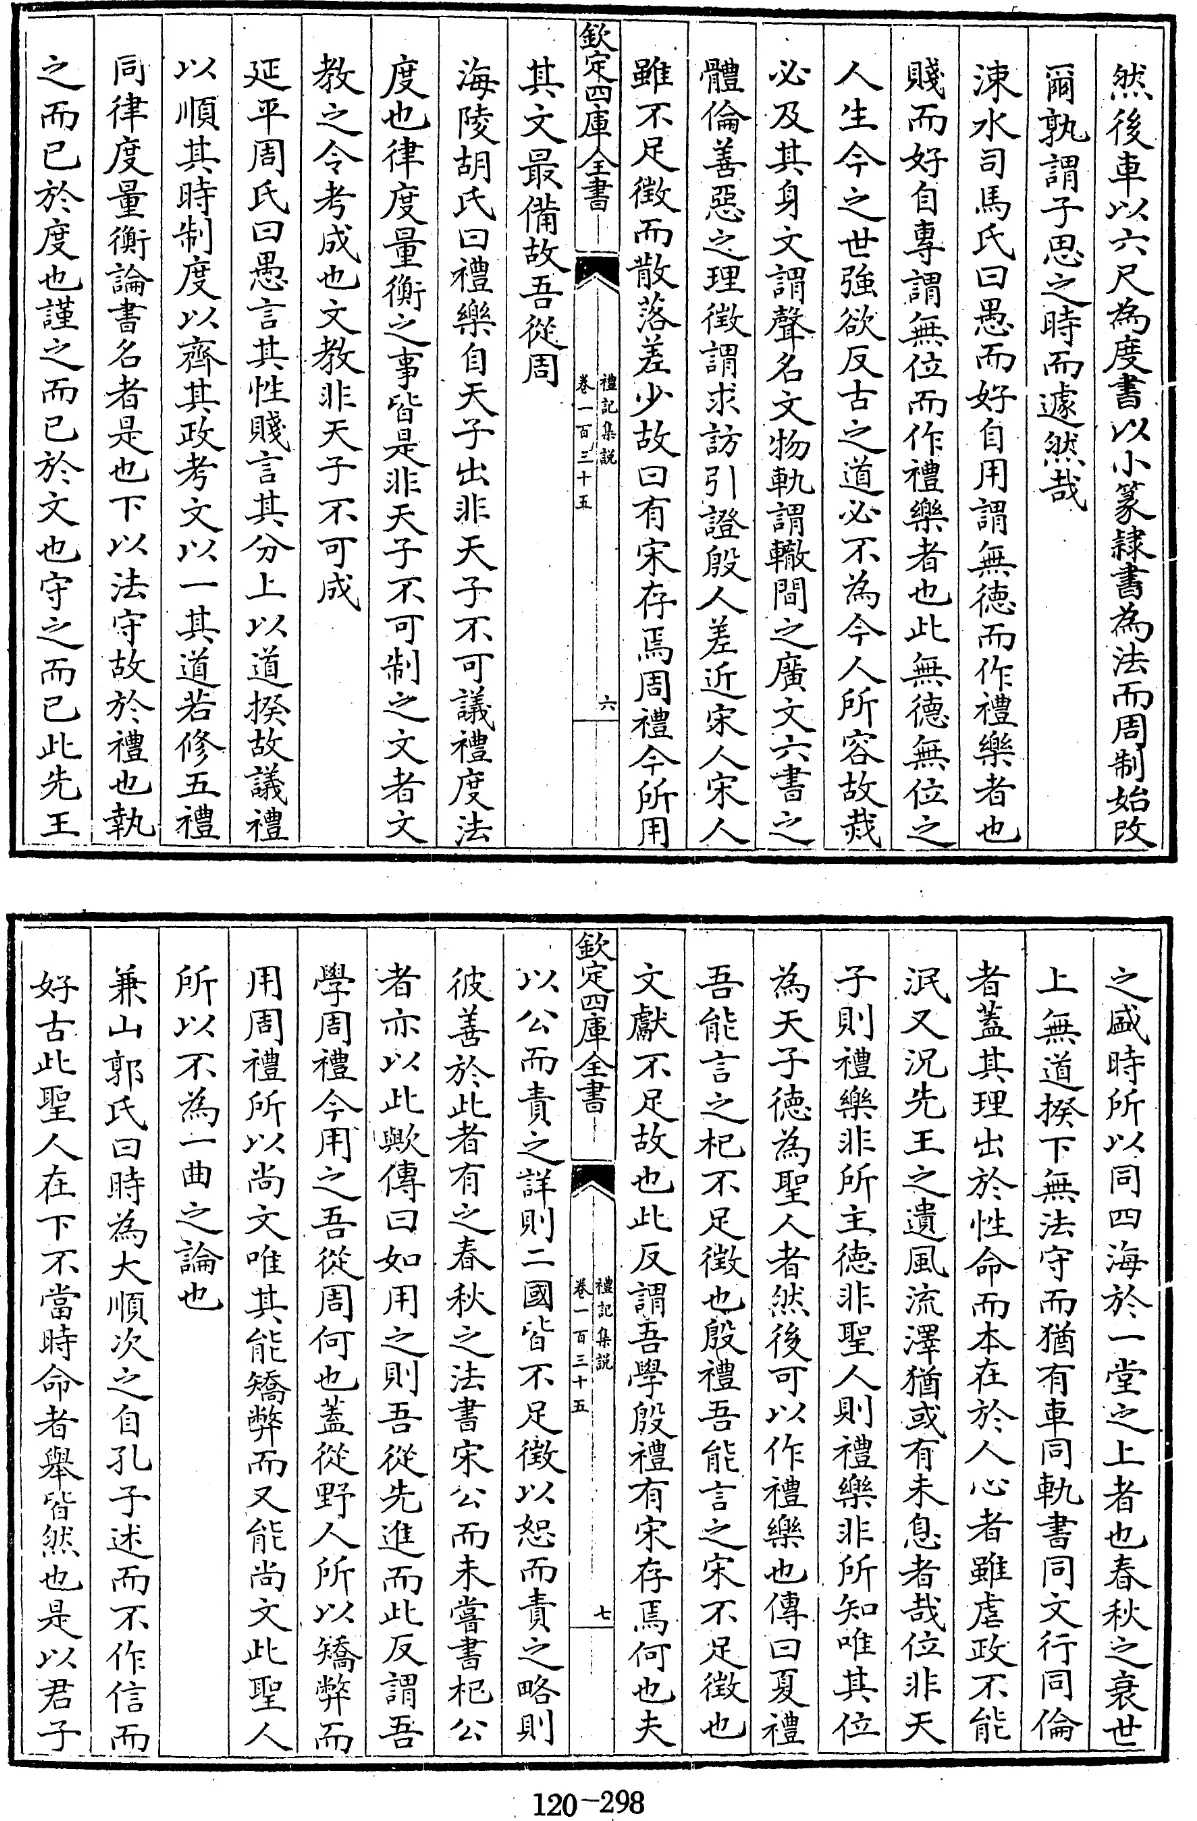 然後車以六尺為度書以小篆隸書為法而周制始改
爾孰謂子思之時而遽然哉
涑水司馬氏曰愚而好自用謂無德而作禮樂者也
賤而好自專謂無位而作禮樂者也此無德無位之
人生今之世強欲反古之道必不為今人所容故烖
必及其身文謂聲名文物軌謂轍間之廣文六書之
體倫善惡之理徴謂求訪引證殷人差近宋人宋人
雖不足徴而散落差少故曰有宋存焉周禮今所用
欽定四庫全書
禮記集説
卷一百三十五
六
其文最備故吾從周
海陵胡氏曰禮樂自天子出非天子不可議禮度法
度也律度量衡之事皆是非天子不可制之文者文
教之令考成也文教非天子不可成
延平周氏曰愚言其性賤言其分上以道揆故議禮
以順其時制度以齊其政考文以一其道若修五禮
同律度量衡論書名者是也下以法守故於禮也執
之而已於度也謹之而已於文也守之而已此先王
之盛時所以同四海於一堂之上者也春秋之衰世
上無道揆下無法守而猶有車同軌書同文行同倫
者蓋其理出於性命而本在於人心者雖虐政不能
泯又況先王之遺風流澤猶或有未息者哉位非天
子則禮樂非所主德非聖人則禮樂非所知唯其位
為天子徳為聖人者然後可以作禮樂也傳曰夏禮
吾能言之杞不足徴也殷禮吾能言之宋不足徴也
文獻不足故也此反謂吾學殷禮有宋存焉何也夫
欽定四庫全書
禮記集説
卷一百三十五
七
以公而責之詳則二國皆不足徴以恕而責之略則
彼善於此者有之春秋之法書宋公而未嘗書杞公
者亦以此歟傳曰如用之則吾從先進而此反謂吾
學周禮今用之吾從周何也蓋從野人所以矯弊而
用周禮所以尚文唯其能矯弊而又能尚文此聖人
所以不為一曲之論也
兼山郭氏曰時為大順次之自孔子述而不作信而
好古此聖人在下不當時命者舉皆然也是以君子
120-298